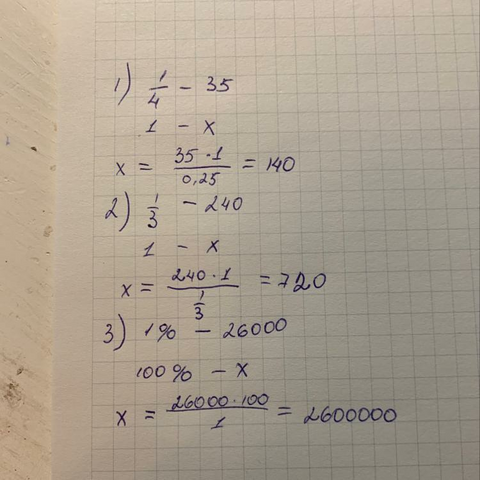 1) 1/4 - 35
1 - x
x = 35·1/0,25 = 140
2) 1/3 - 240
1 - x
x = 240·1/1/3 = 720
3) 1% - 26000
100% - x
x = 26000·100/1 = 2600000